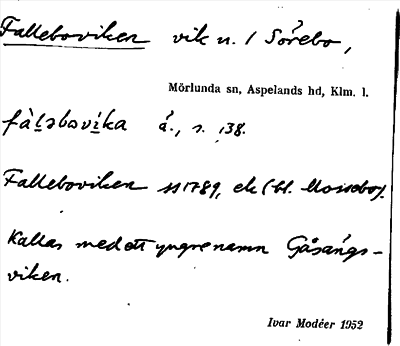 Falleboviken vik n. / Sörebo,
Mörlunda sn, Aspelands hd, Klm. l.
fàləbovika å., s. 138.
Falleboviken 1789, ek (bl. Mossebo).
Kallas med ett yngre namn Gåsängs-
viken.
Ivar Modéer 1952